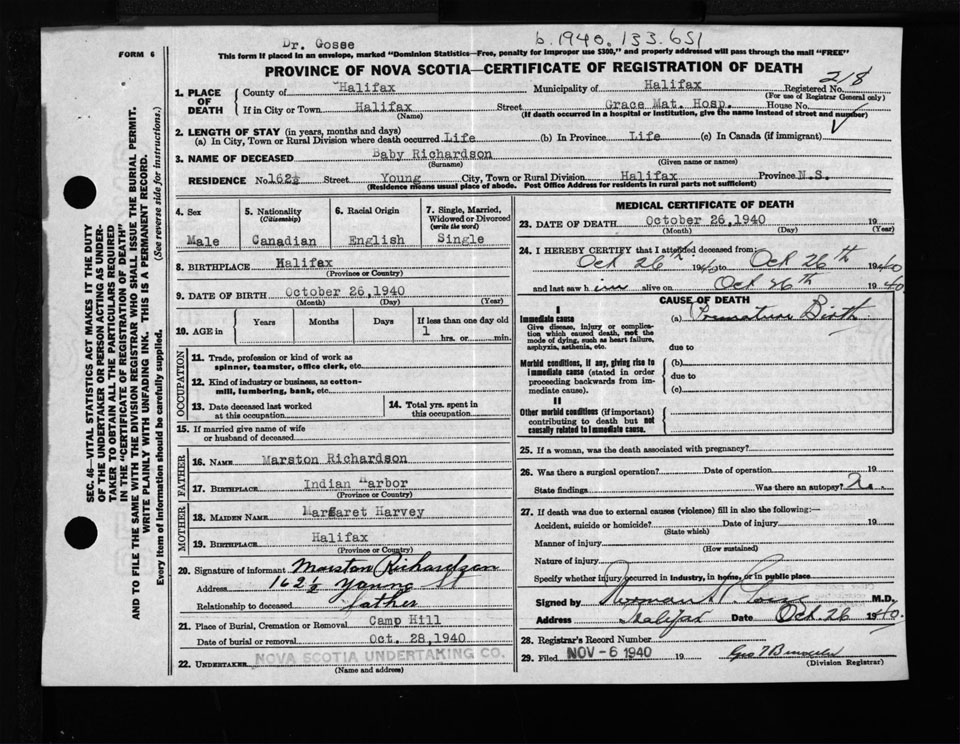 Dr. Gosse
b. 1940. 133. 651
FORM 6
This form if placed in an envelope, marked "Dominion Statistics—Free, penalty for improper use $300," and properly addressed will pass through the mail "FREE"
PROVINCE OF NOVA SCOTIA—CERTIFICATE OF REGISTRATION OF DEATH
218
1. PLACE OF DEATH
County of Halifax Municipality of Halifax Registered No.
(For use of Registrar General only)
If in City or Town Halifax Street Grace Mat. Hosp. House No.
(Name) (If death occurred in a hospital or institution, give the name instead of street and number)
2. LENGTH OF STAY (in years, months and days)
(a) In City, Town or Rural Division where death occurred Life (b) In Province Life (c) In Canada (if immigrant)
3. NAME OF DECEASED Baby Richardson
(Surname) (Given name or names)
RESIDENCE No. 162½ Street Young City, Town or Rural Division Halifax Province N.S.
(Residence means usual place of abode. Post Office Address for residents in rural parts not sufficient)
4. Sex
Male
5. Nationality
(Citizenship)
Canadian
6. Racial Origin
English
7. Single, Married, Widowed or Divorced
(write the word)
Single
8. BIRTHPLACE Halifax
(Province or Country)
9. DATE OF BIRTH October 26,1940
(Month) (Day) (Year)
10. AGE in Years Months Days If less than one day old
1 hrs. or min.
OCCUPATION
11. Trade, profession or kind of work as spinner, teamster, office clerk, etc.
12. Kind of industry or business, as cotton-mill, lumbering, bank, etc.
13. Date deceased last worked at this occupation
14. Total yrs. spent in this occupation
15. If married give name of wife or husband of deceased
FATHER
16. NAME Marston Richardson
17. BIRTHPLACE Indian Harbor
(Province or Country)
MOTHER
18. MAIDEN NAME Margaret Harvey
19. BIRTHPLACE Halifax
(Province or Country)
20. Signature of informant Marston Richardson
Address 162 ½ Young St
Relationship to deceased father
21. Place of Burial, Cremation or Removal Camp Hill
Date of burial or removal Oct. 28,1940
22. UNDERTAKER NOVA SCOTIA UNDERTAKING CO.
(Name and address)
MEDICAL CERTIFICATE OF DEATH
23. DATE OF DEATH October 26,1940 19
(Month) (Day) (Year)
24. I HEREBY CERTIFY that I attended deceased from:
Oct 26th 1940 to Oct 26th 1940
and last saw him alive on Oct 26th 1940
CAUSE OF DEATH
I
Immediate cause
Give disease, injury or complication which caused death, not the mode of dying, such as heart failure, asphyxia, asthenia, etc.
(a) Premature Birth
due to
Morbid conditions, if any, giving rise to immediate cause (stated in order proceeding backwards from immediate cause).
(b)
due to
(c)
II
Other morbid conditions (if important) contributing to death but not causally related to immediate cause.
25. If a woman, was the death associated with pregnancy?
26. Was there a surgical operation? Date of operation 19
State findings Was there an autopsy?
27. If death was due to external causes (violence) fill in also the following:—
Accident, suicide or homicide? Date of injury 19
(State which)
Manner of injury
(How sustained)
Nature of injury
Specify whether injury occurred in industry, in home, or in public place
Signed by Norman Gosse M.D.
Address Halifax Date Oct. 26 1940.
28. Registrar's Record Number
29. Filed NOV -6 1940 19
(Division Registrar)
SEC. 46—VITAL STATISTICS ACT MAKES IT THE DUTY
OF THE UNDERTAKER OR PERSON ACTING AS UNDER-
TAKER TO OBTAIN ALL THE PARTICULARS REQUIRED
IN THE "CERTIFICATE OF REGISTRATION OF DEATH"
AND TO FILE THE SAME WITH THE DIVISION REGISTRAR WHO SHALL ISSUE THE BURIAL PERMIT.
WRITE PLAINLY WITH UNFADING INK. THIS IS A PERMANENT RECORD.
Every item of information should be carefully supplied. (See reverse side for instructions.)